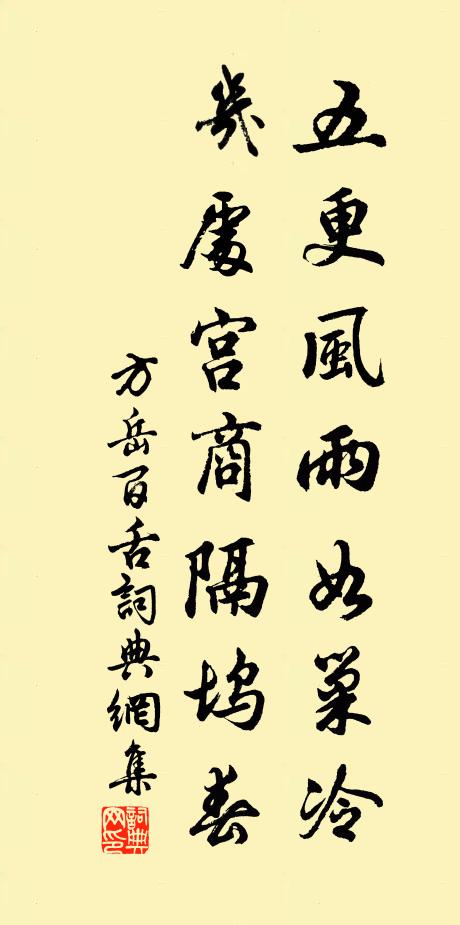 五更風雨如巢冷
幾處宮商隔塢春
方岳百舌詞典網集
詞典网印